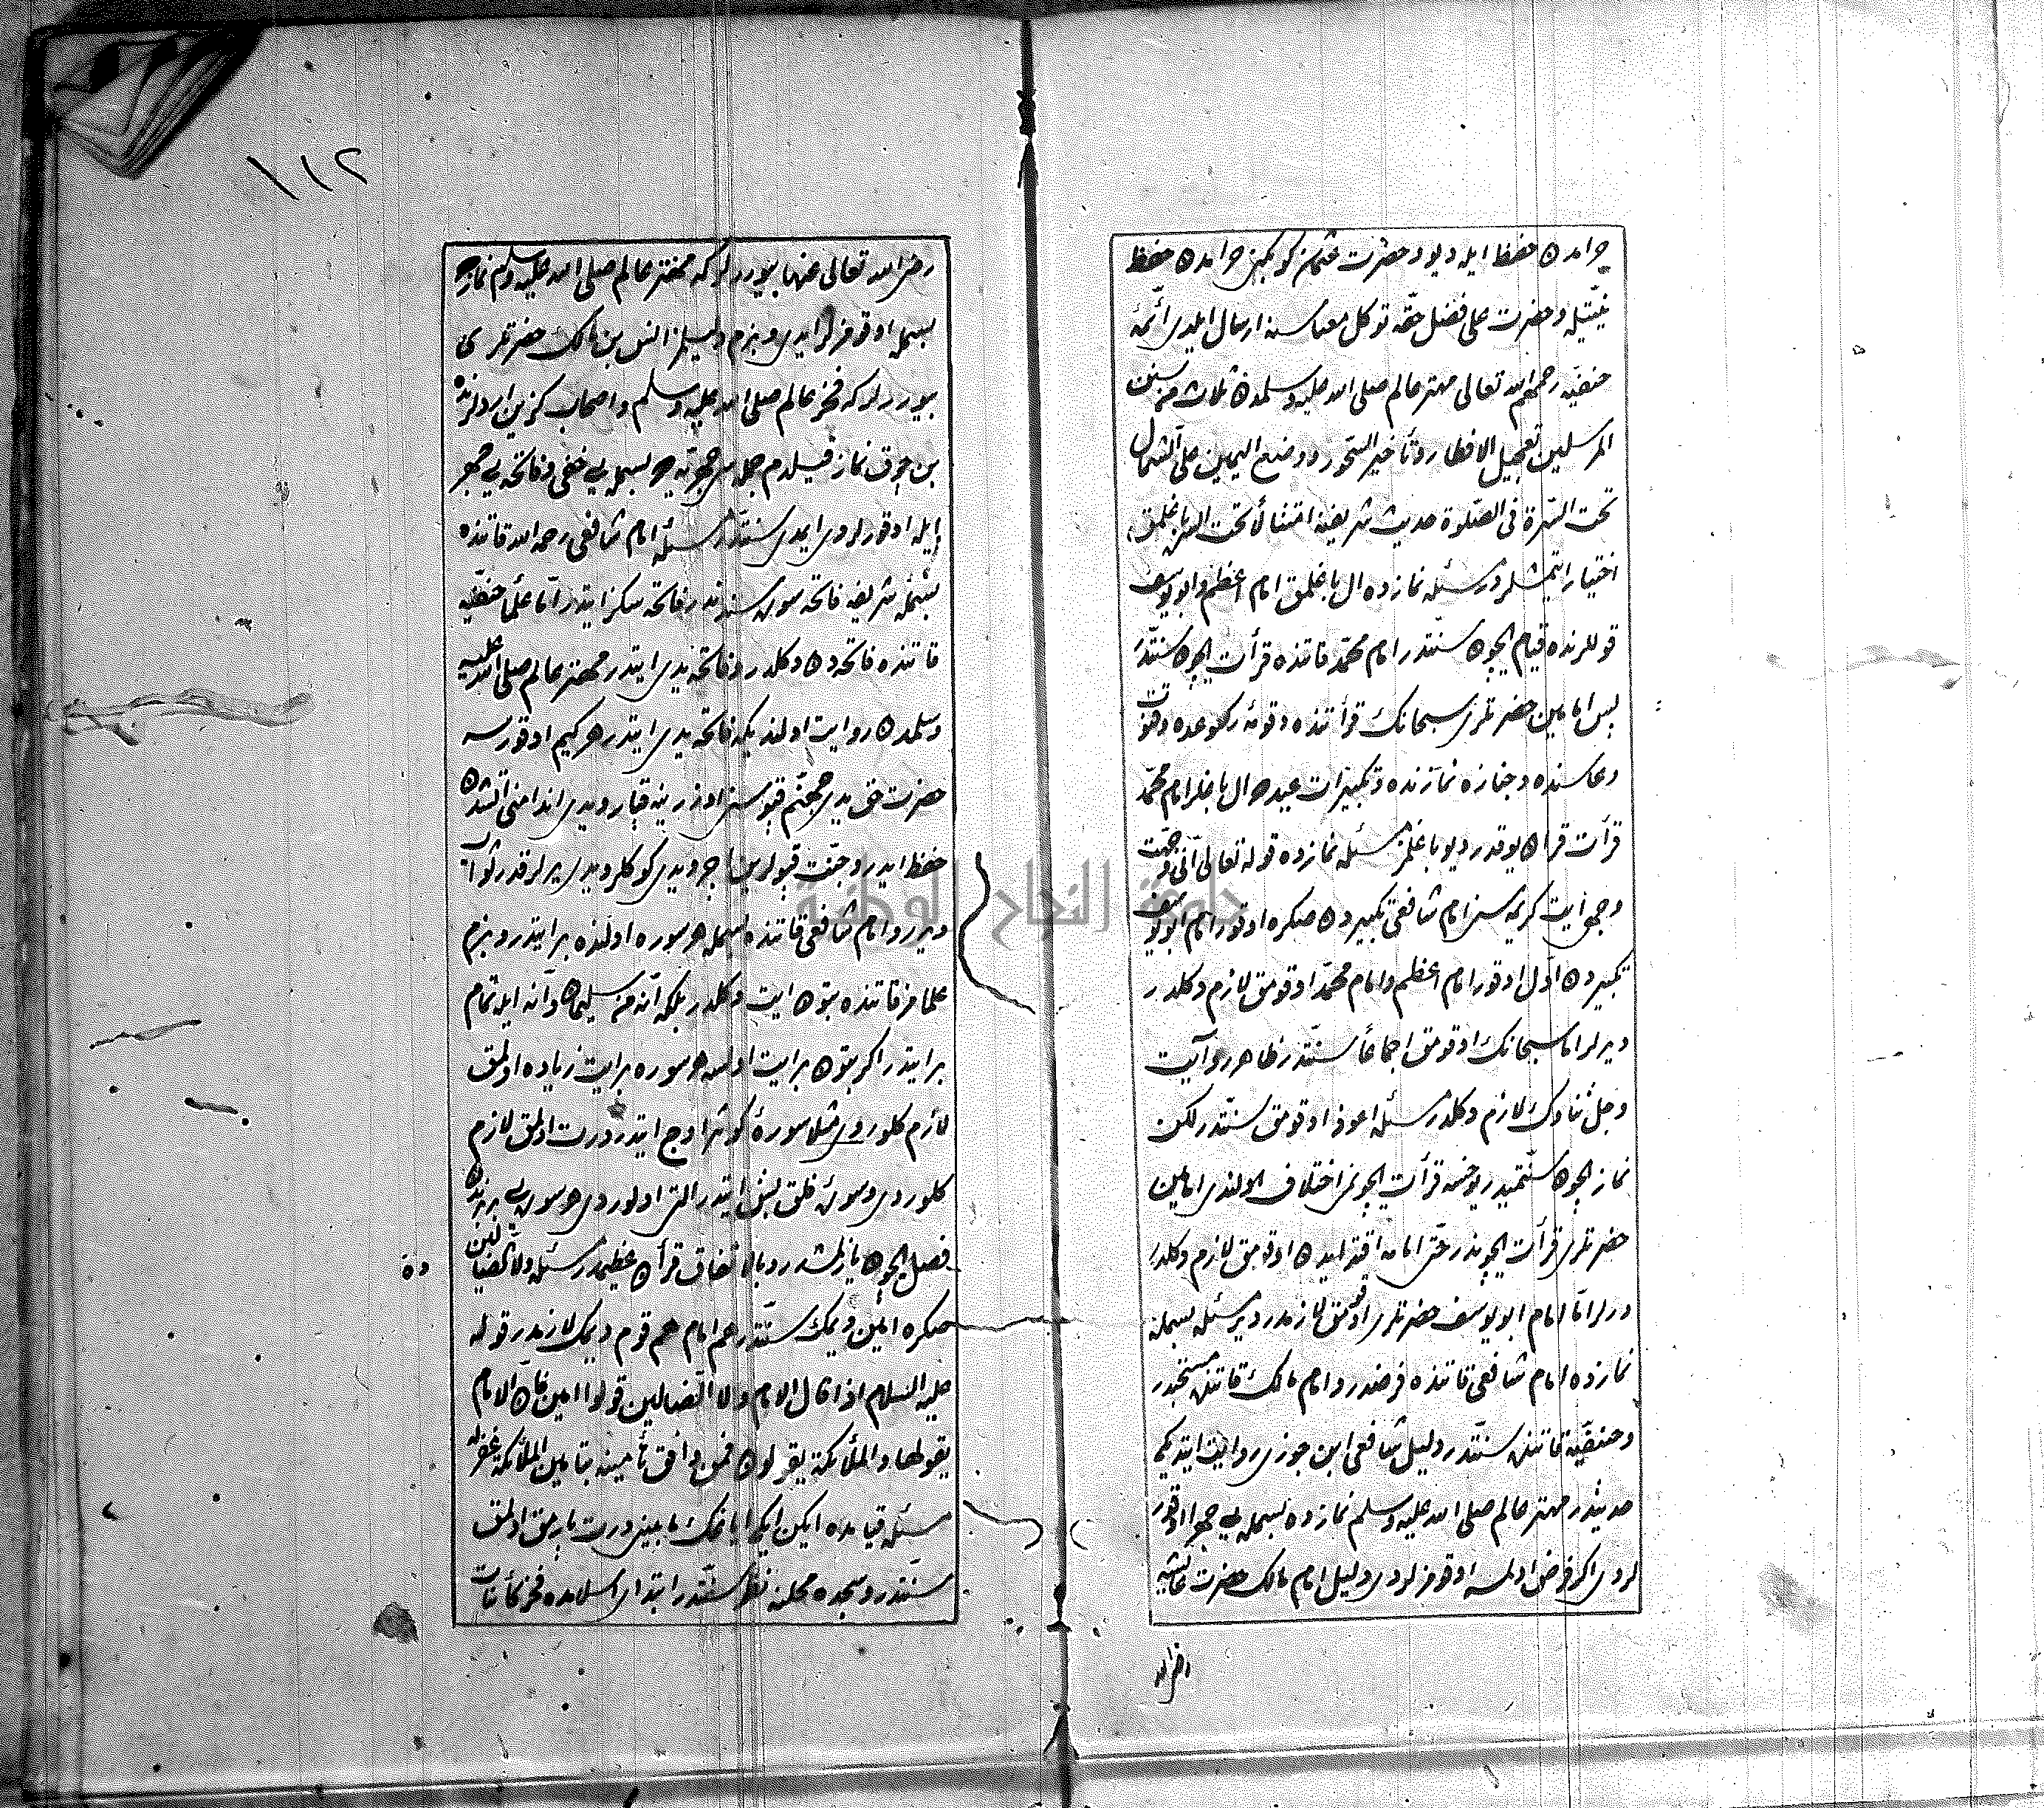 حرامدن حفظ ایله دیو و حضرت عثمان کوکمین حرامدن حفظ
نیتیله و حضرت علی فضل حقه توکل معناسنه ارسال ایلدی ائمۀ
حنفیه رحمهم الله تعالی مهتر عالم صلی الله علیه وسلمدن ثلاث من سنن
المرسلین تعجیل الافطار وتأخیر السحور ووضع الیمین علی الشمال
تحت السرة فی الصلوة حدیث شریفنه امتثالا تحت السره باغلمق
اختیار ایتمشلردر مسئله نمازده ال باغلمق امام اعظم وابو یوسف
قوللرنده قیام ایچون سنتدر امام محمد قاتنده قرأت ایچون سنتدر
پس امامین حضرتلری سبحانک قرأتنده وقومۀ رکوعده وقنوت
دعاسنده وجنازه نمازنده وتکبیرات عیدده ال باغلر امام محمد
قرأت قرآن یوقدر دیو باغلمز مسئله نمازده قوله تعالی انی وجهت
وجهی ایت کریمه سن امام شافعی تکبیردن صکره اوقور امام ابو یوسف
تکبیردن اول اوقور امام اعظم وامام محمد اوقومق لازم دکلدر
دیرلر اما سبحانک اوقومق اجماعا سنتدر ظاهر روایت
وجل ثناؤک لازم دکلدر مسئله اعوذ اوقومق سنتدر لکن
نماز ایچون سنتمیدر یوخسه قرأت ایچونمی اختلاف اولندی امامین
حضرتلری قرأت ایچوندر حتی امامه اقتدا ایدن اوقومق لازم دکلدر
دیرلر اما امام ابو یوسف حضرتلری اوقومق لازمدر دیر مسئله بسمله
نمازده امام شافعی قاتنده فرضدر وامام مالک قاتنده مستحبدر
وحنفیه قاتنده سنتدر دلیل شافعی ابن جوزی روایت ایتدیکی
حدیثدر مهتر عالم صلی الله علیه وسلم نمازده بسمله یی جهرا اوقور
لردی اکر فرض اولمسه اوقومزلردی دلیل امام مالک حضرت عائشه
رضی الله
١١٢
رضی الله تعالی عنها بیوررلر که مهتر عالم صلی الله علیه وسلم نمازده
بسمله اوقومزلر ایدی و بزم دلیلمز انس بن مالک حضرتلری
بیوررلر که فخر عالم صلی الله علیه وسلم واصحاب کزین اردلرنده
بن چوق نماز قیلدم جمله سی جهریه ده بسمله یی خفی وفاتحه یی جهر
ایله اوقورلردی ایمدی سنتدر مسئله امام شافعی رحمه الله قاتنده
بسمله شریفه فاتحه سوره سندندر فاتحه سکز ایتدر اما علما حنفیه
قاتنده فاتحه دن دکلدر وفاتحه یدی ایتدر مهتر عالم صلی الله علیه
وسلمدن روایت اولندیکه فاتحه یدی ایتدر هر کیم اوقورسه
حضرت حق یدی جهنم قپوسن اوزرینه قپار ویدی اندامنی آتشدن
حفظ ایدر وجنت قپولرین اچر ویدی کوکلر ویدی یرلر قدر ثواب
ویرر وامام شافعی قاتنده بسمله هر سوره اولنده بر ایتدر وبزم
علمامز قاتنده بتون ایت دکلدر بلکه انه من سلیمان وانه ایله تمام
بر ایتدر اکر بتون بر ایت اولسه هر سوره بر ایت زیاده اولمق
لازم کلوردی مثلا سورۀ کوثر اوچ ایتدر درت اولمق لازم
کلوردی وسورۀ فلق بش ایتدر التی اولوردی هر سوره یی بربرندن
فصل ایچون یازلمشدر وبالاتفاق قرآن عظیمدر مسئله ولا الضالین
دن
صکره امین دیمک سنتدر هم امام هم قوم دیمک لازمدر قوله
علیه السلام اذا قال الامام ولا الضالین قولوا امین فان الامام
یقولها والملائکة یقولون فمن وافق تأمینه بتأمین الملائکة غفر له
مسئله قیامده ایکن ایکی ایاغک مابینی درت پارمق اولمق
سنتدر وسجده محلنه نظر سنتدر ابتدای اسلامده فخر کائنات